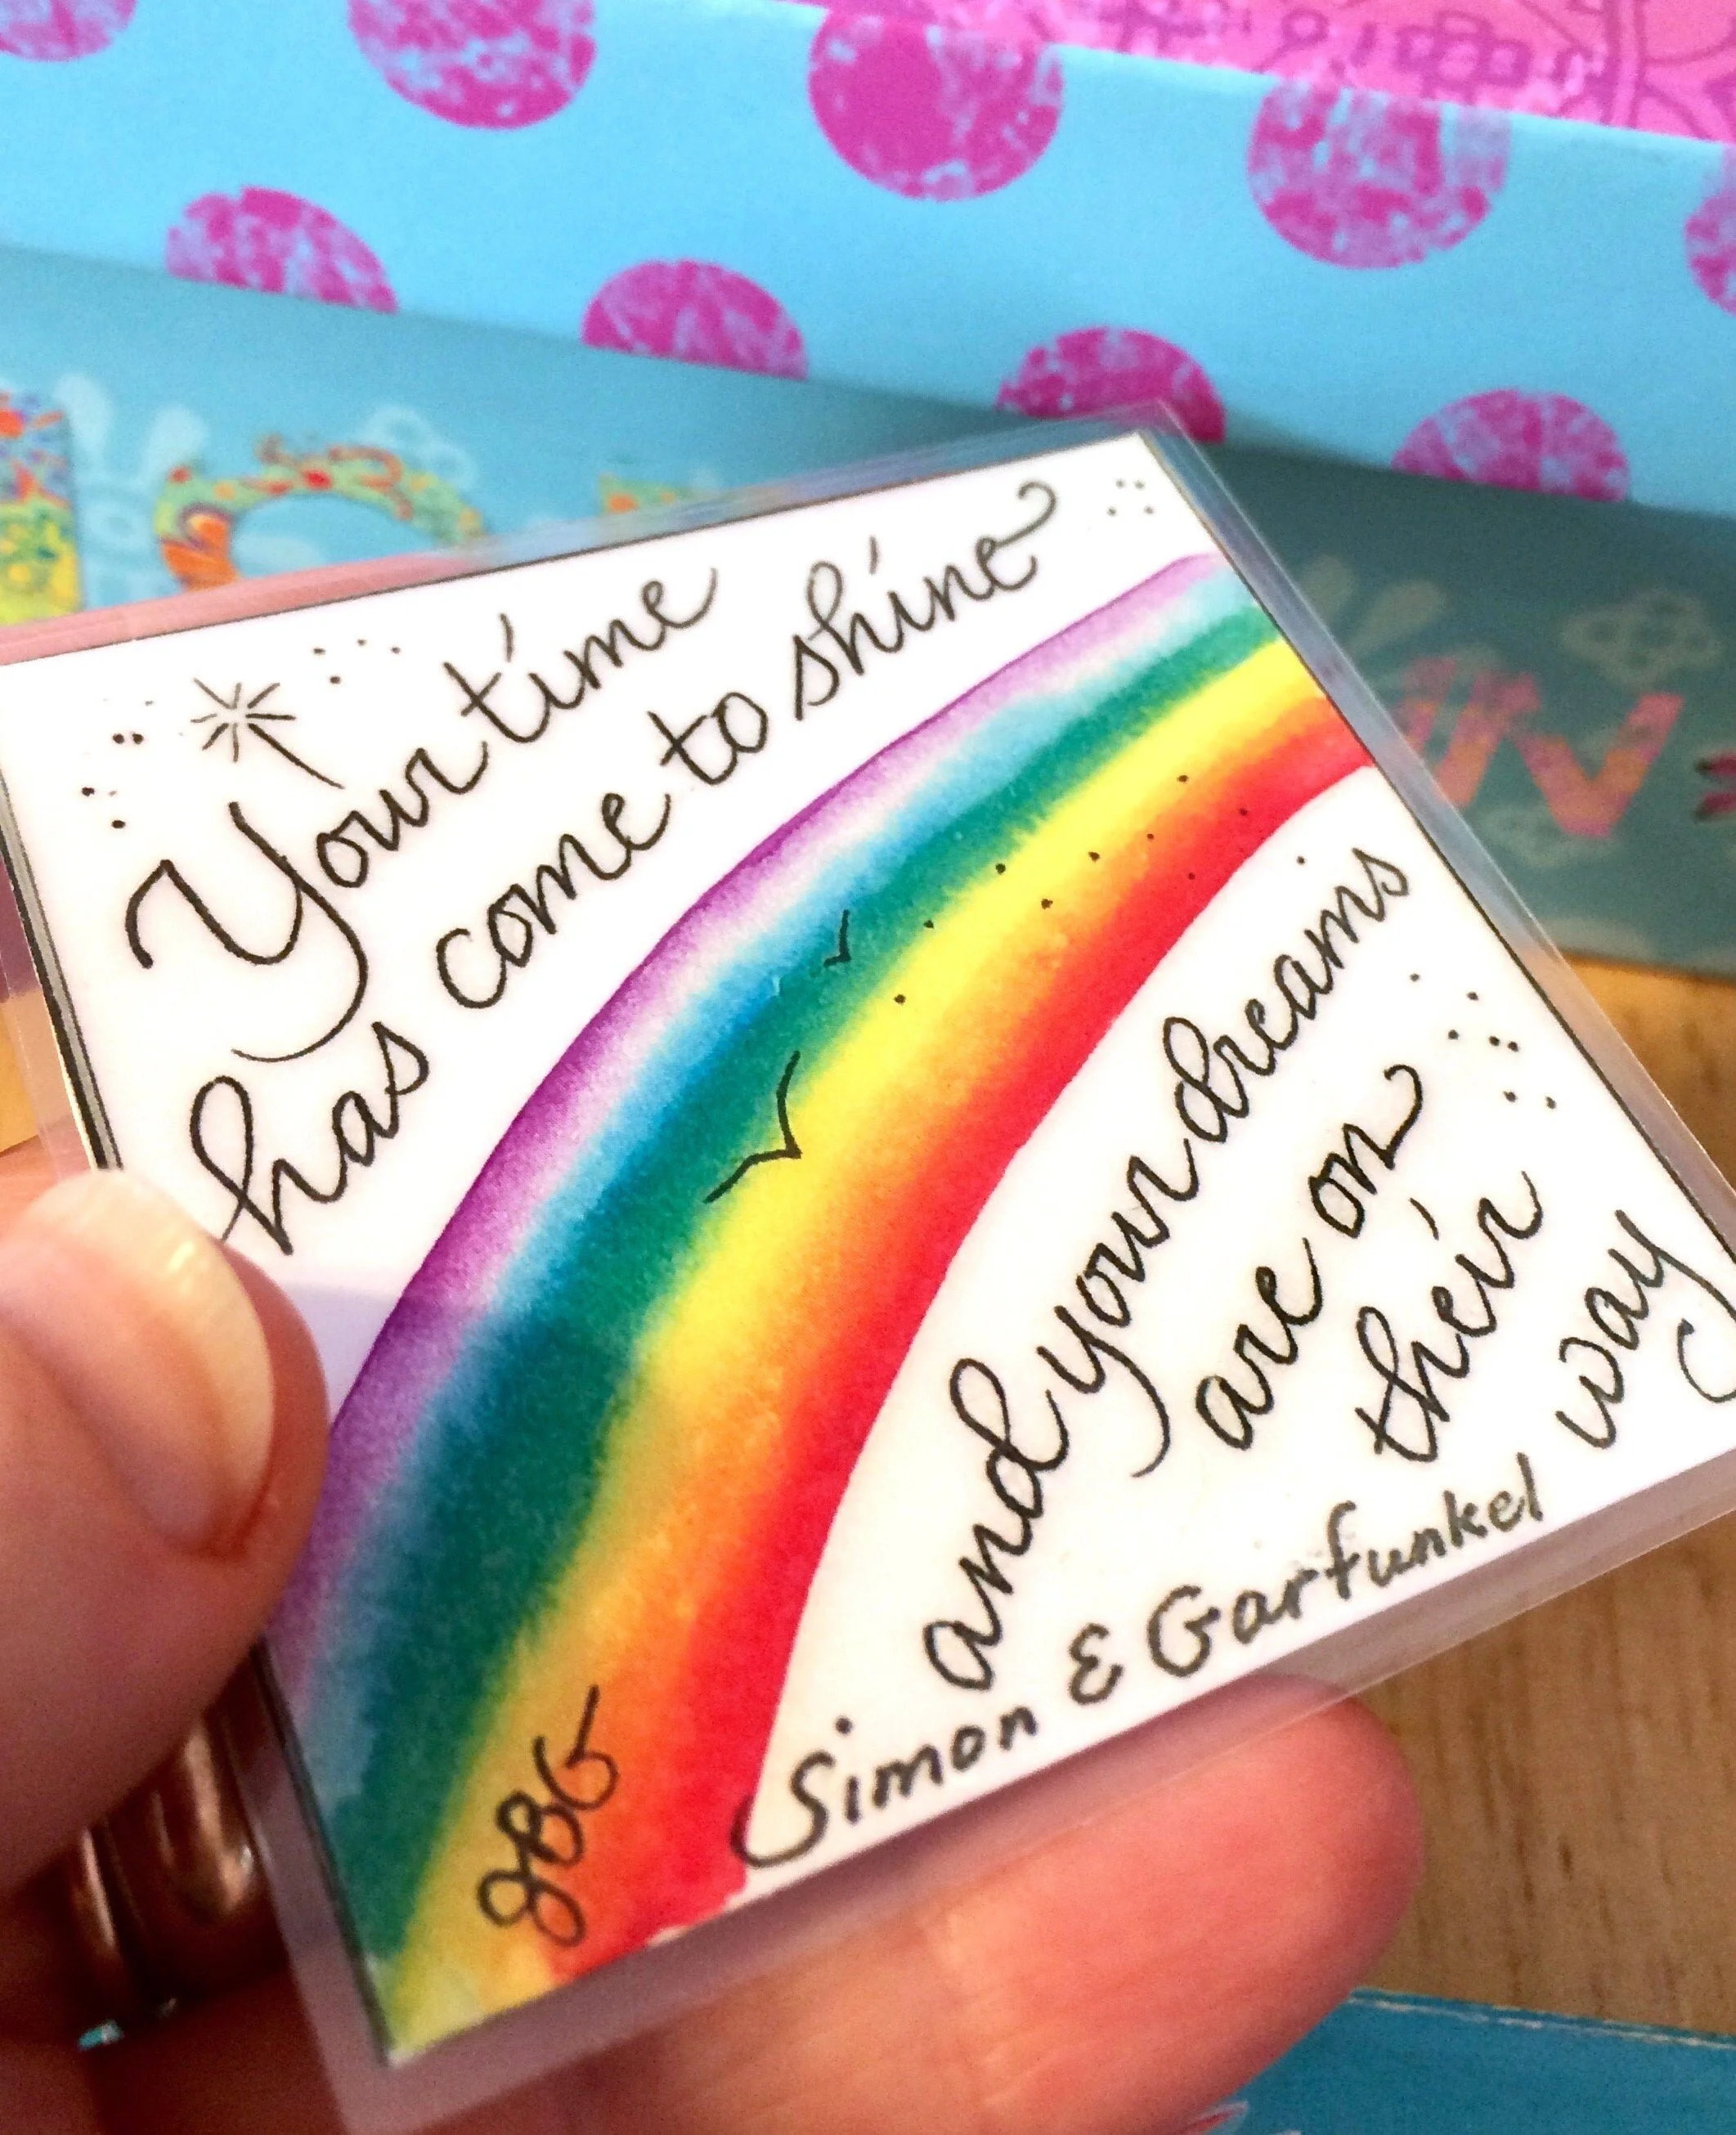 Your time
has come to shine
and your dreams
are on
their
way
Simon & Garfunkel
JBG